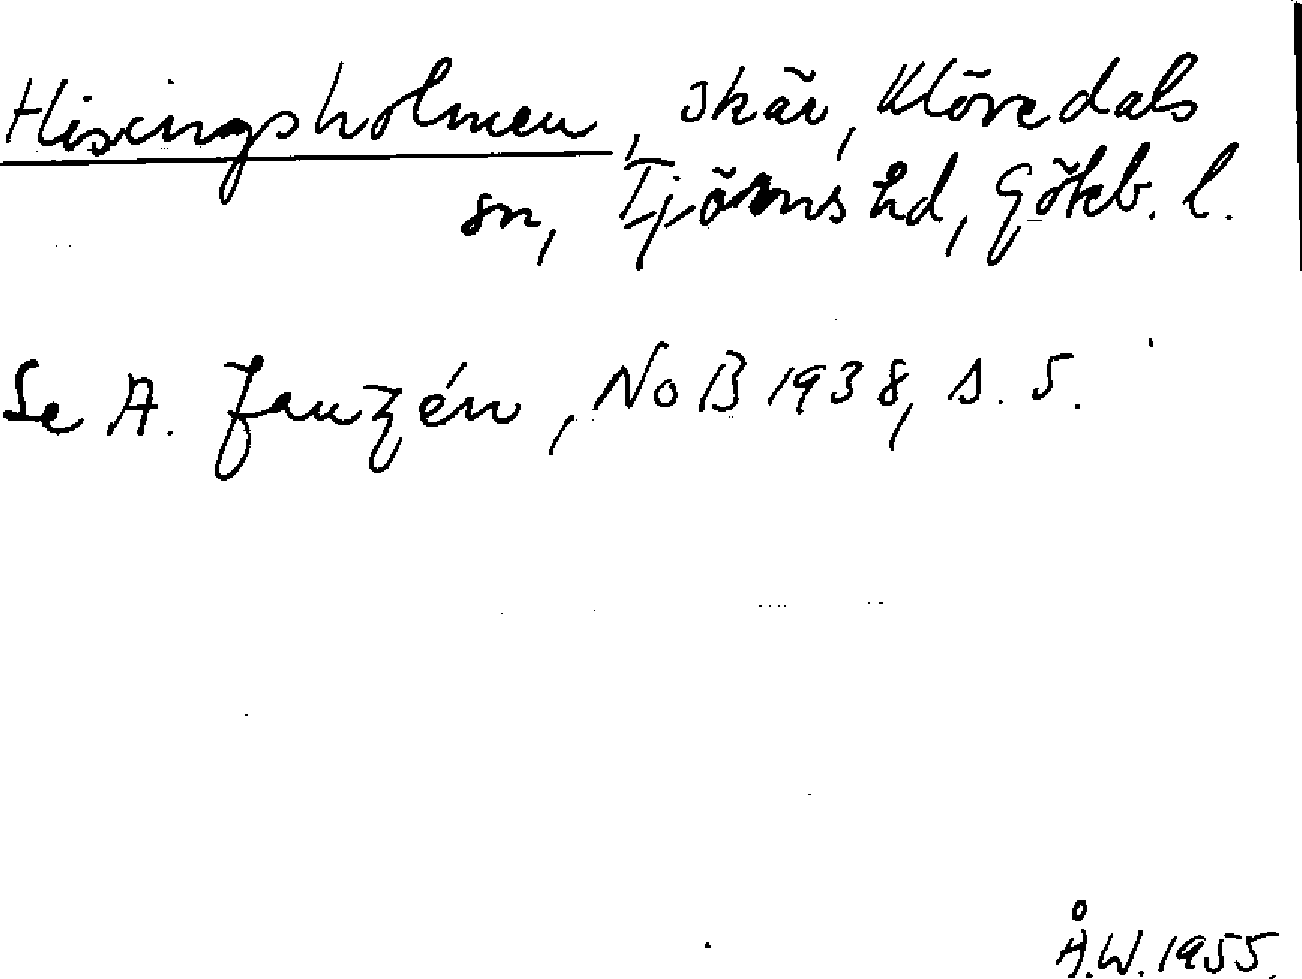 Hisingsholmen, skär, Klövedals
sn, Tjörns hd, Göteb. l.
Se A. Janzén, NoB 1938, s. 5.
Å.W. 1955.